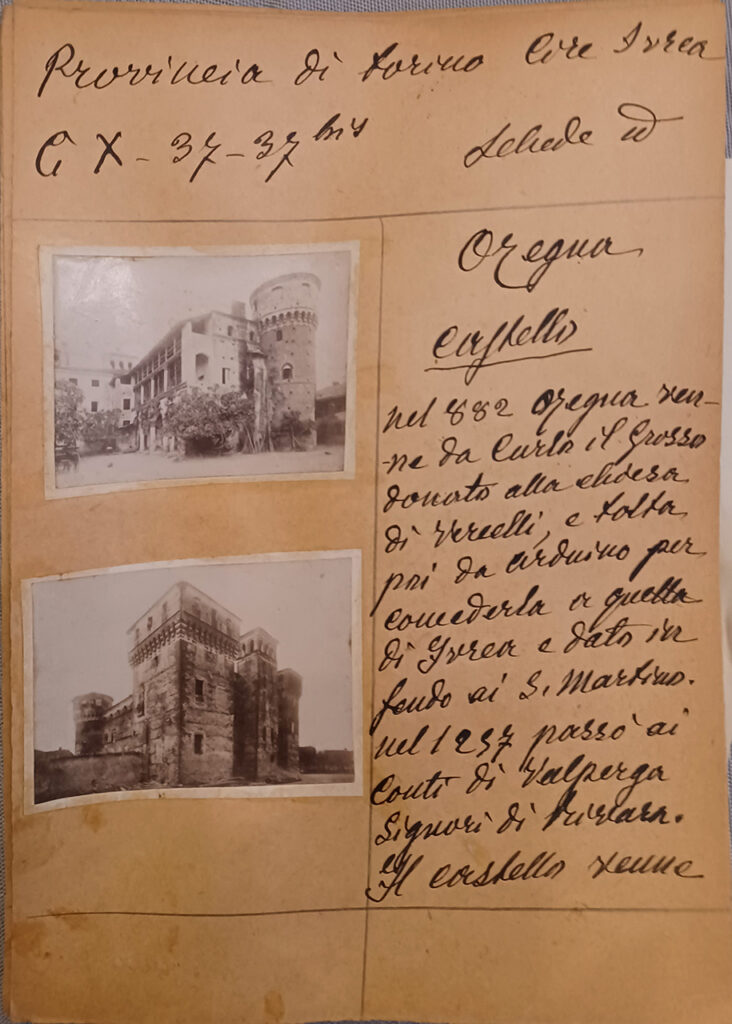 Provincia di Torino Circ Ivrea
C X - 37 - 37 bis
Schede
Ozegna
Castello
nel 882 Ozegna ven-
-ne da Carlo il Grosso
donato alla chiesa
di Vercelli, e tolta
poi da Arduino per
concederla a quella
di Ivrea e dato in
feudo ai S. Martino.
nel 1237 passò ai
Conti di Valperga
Signori di Rivara.
Il castello venne